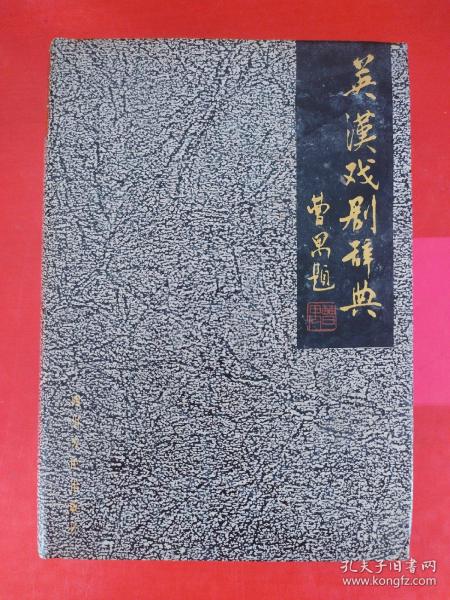 英漢戏剧辞典
曹禺題
孔夫子旧书网
www.kongfz.com